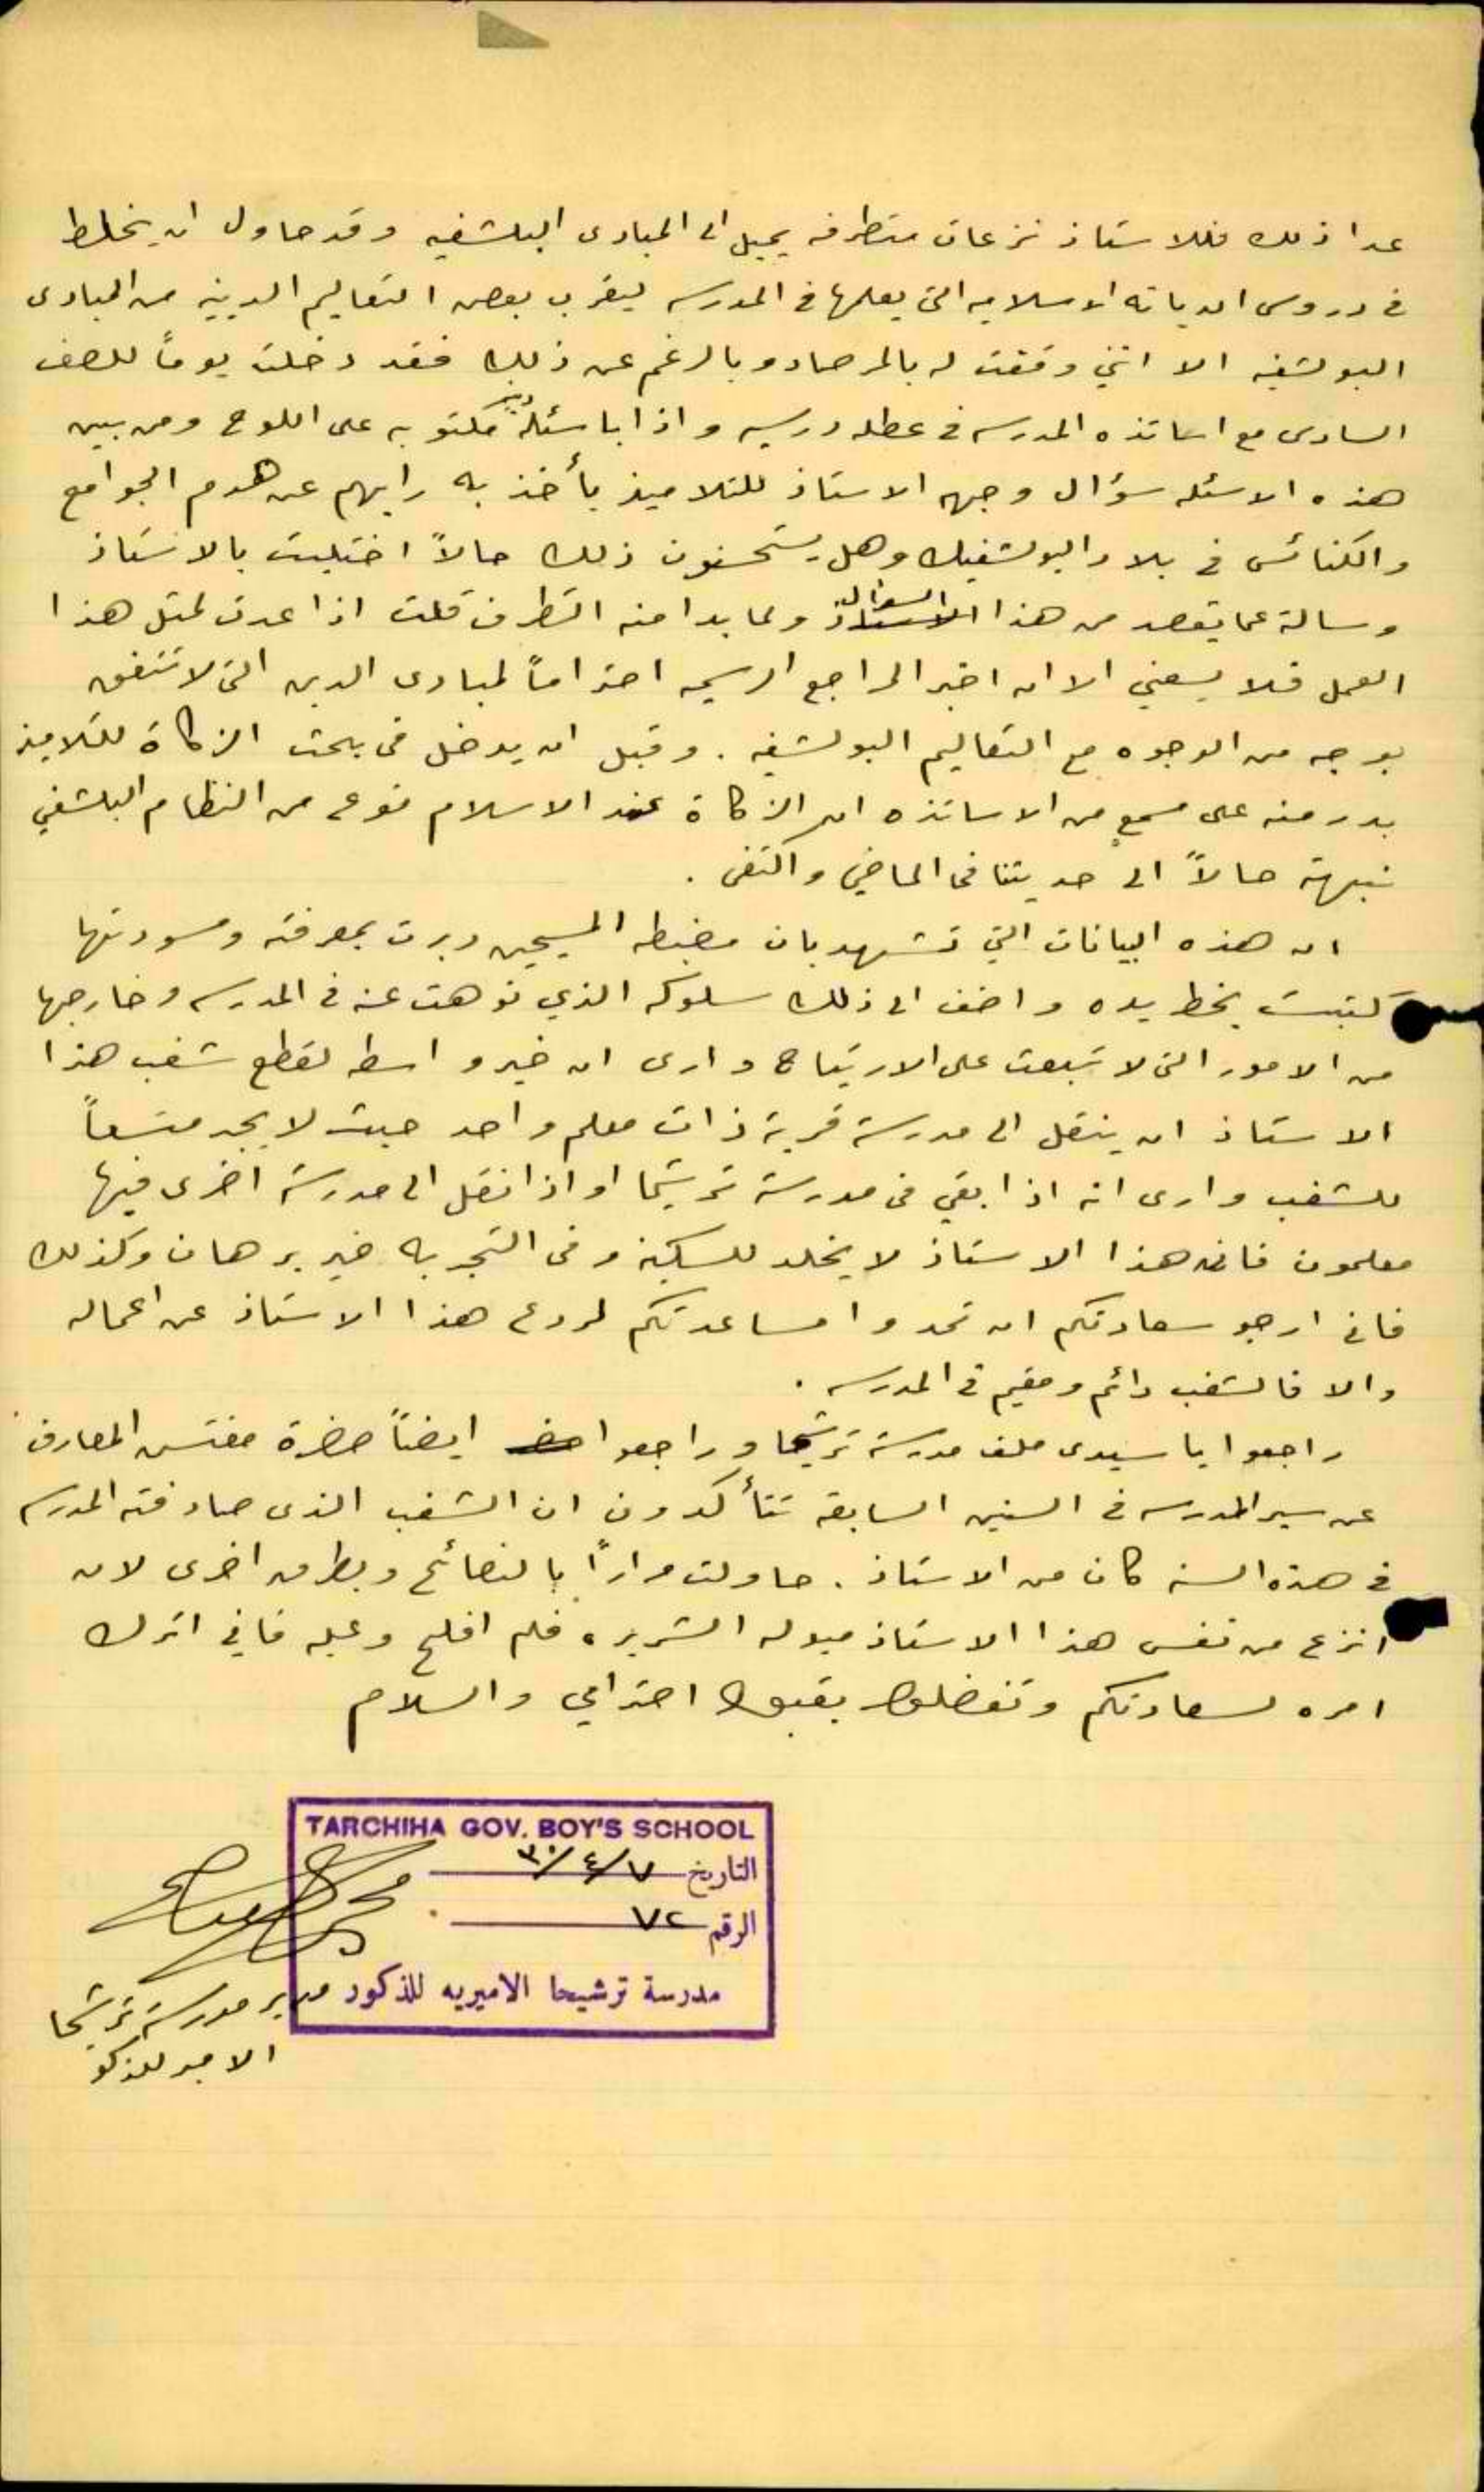 عدا ذلك فللاستاذ نزعات متطرفه يميل الى المبادى البلشفيه وقد حاول ان يخلط
في دروس الديانه الاسلاميه التي يعلمها في المدرسه ليقرب بعض التعاليم الدينيه من المبادى
البولشفيه الا انني وقفت له بالمرصاد وبالرغم عن ذلك فقد دخلت يوماً للصف
السادس مع اساتذه المدرسه في عطله درسيه واذا باسئلة دينيه مكتوبه على اللوح ومن بين
هذه الاسئله سؤال وجهه الاستاذ للتلاميذ يأخذ به رايهم عن هدم الجوامع
والكنائس في بلاد البولشفيك وهل يستحسنون ذلك حالاً اختليت بالاستاذ
وسالته عما يقصد من هذا السؤال ولما بدا منه التطرف قلت اذا عدت لمثل هذا
العمل فلا يسعني الا ان اخبر المراجع الرسميه احتراماً لمبادى الدين التي لا تتفق
بوجه من الوجوه مع التعاليم البولشفيه . وقبل ان يدخل في بحث الزكاة للتلاميذ
بدر منه على مسمع من الاساتذه ان الزكاة عند الاسلام نوع من النظام البلشفي
نبهته حالاً الى حديثنا في الماضي واكتفى .
ان هذه البيانات التي تشهد بان مضبطه المسيحيين دبرت بمعرفته ومسودتها
كتبت بخط يده واضف الى ذلك سلوكه الذي نوهت عنه في المدرسه وخارجها
من الامور التي لا تبعث على الارتياح وارى ان خير واسطه لقطع شغب هذا
الاستاذ ان ينقل الى مدرسة قرية ذات معلم واحد حيث لا يجد متسعاً
للشغب وارى انه اذا بقي في مدرسة ترشيحا او اذا نقل الى مدرسة اخرى فيها
معلمون فان هذا الاستاذ لا يخلد للسكينه وفي التجربه خير برهان وكذلك
فاني ارجو سعادتكم ان تمدوا مساعدتكم لردع هذا الاستاذ عن اعماله
والا فالشغب دائم ومقيم في المدرسه .
راجعوا يا سيدى ملف مدرسة ترشيحا وراجعوا ايضاً حضرة مفتش المعارف
عن سير المدرسه في السنين السابقه تتأكدون ان الشغب الذى صادفته المدرسه
في هذه السنه كان من الاستاذ . حاولت مراراً بالنصائح وبطرق اخرى لان
انزع من نفس هذا الاستاذ ميوله الشريره فلم افلح وعليه فاني اترك
امره لسعادتكم وتفضلوا بقبول احترامي والسلام
TARCHIHA GOV. BOY'S SCHOOL
التاريخ ٧/٤/٣٠
الرقم ٧٢
مدرسة ترشيحا الاميريه للذكور
مدير مدرسة ترشيحا